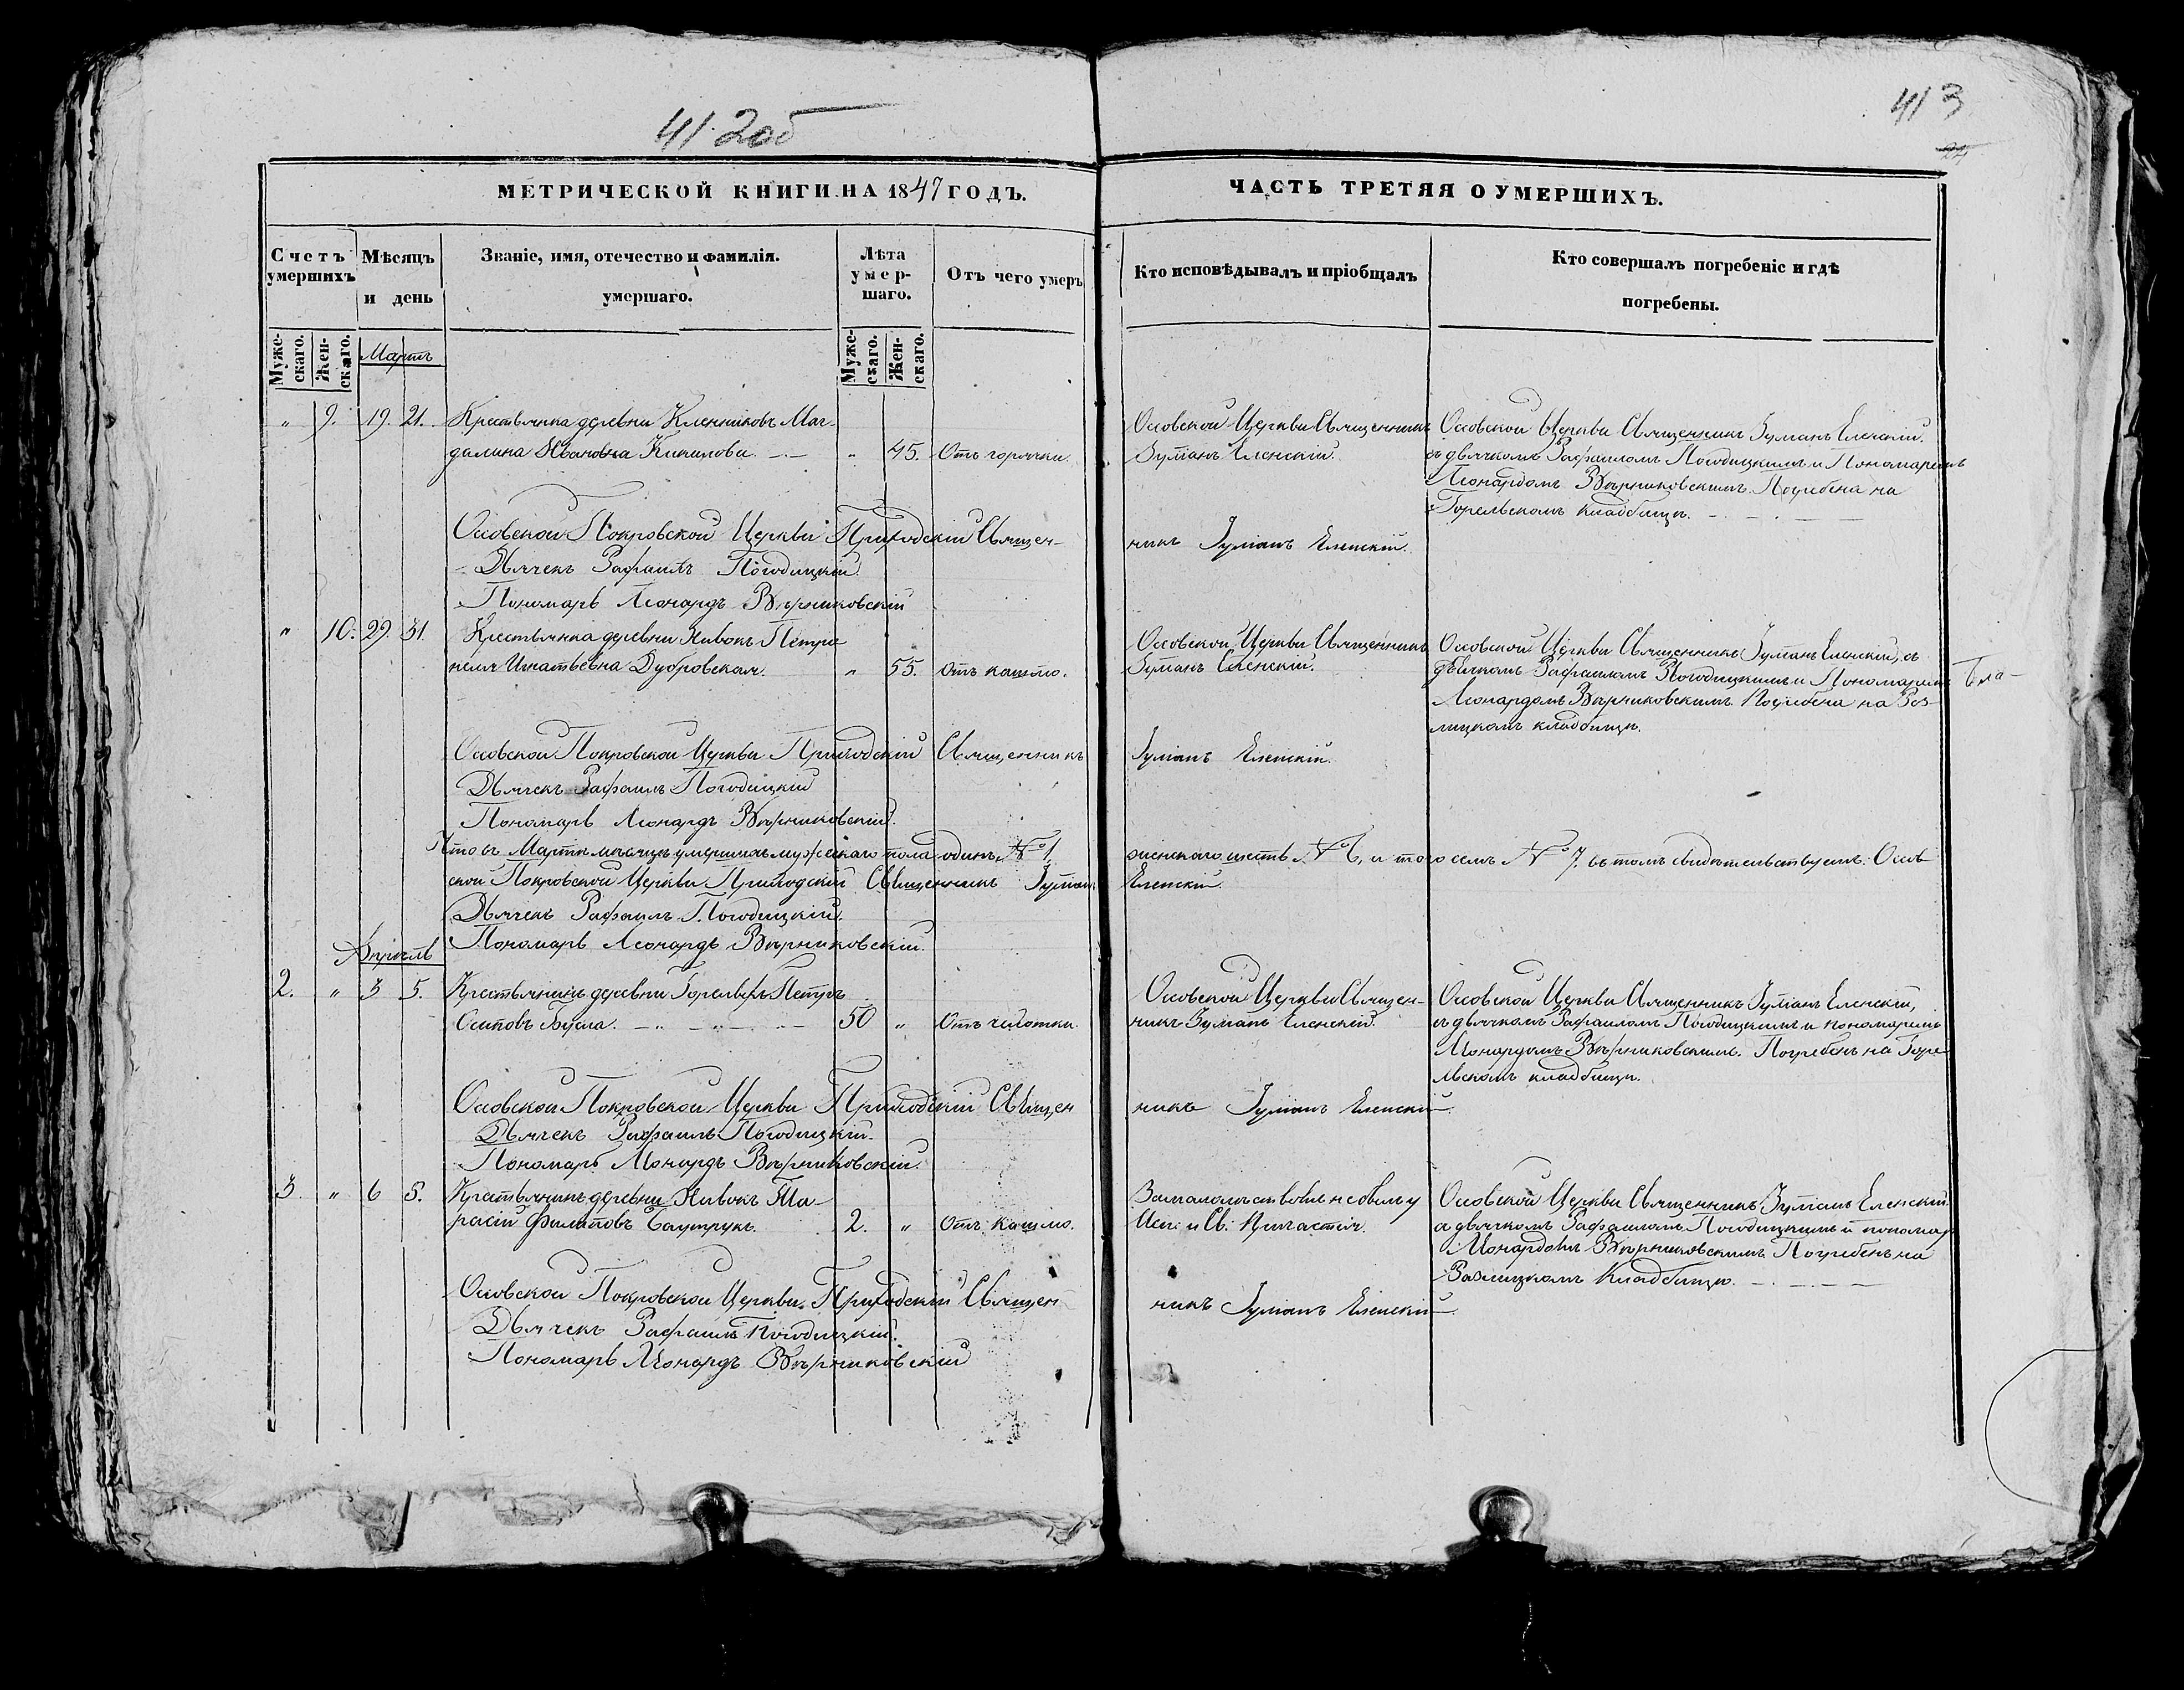 412об
413
24
МЕТРИЧЕСКОЙ КНИГИ НА 1847 ГОДЪ.
ЧАСТЬ ТРЕТЯЯ О УМЕРШИХЪ.
Счетъ умершихъ
Мѣсяцъ и день
Званіе, имя, отечество и фамилія умершаго.
Лѣта умершаго.
Отъ чего умеръ
Кто исповѣдывалъ и пріобщалъ
Кто совершалъ погребеніе и гдѣ погребены.
Мужескаго.
Женскаго.
Мартъ
Мужескаго.
Женскаго.
" 9. 19. 21. Крестьянка деревни Кленниковъ Маг-
далина Ивановна " 45. Отъ горячки.
Осовской Церкви Священникъ
Іуліанъ Еленскій.
Осовской Церкви Священникъ Іуліанъ Еленскій.
съ дьячкомъ Рафаиломъ Погодицкимъ и Пономаремъ
Леонардомъ Вѣрниковскимъ. Погребена на
Горельскомъ кладбищѣ.
Осовской Покровской Церкви Приходскій Священ-
никъ Іуліанъ Еленскій.
Дьячекъ Рафаилъ Погодицкій.
Пономарь Леонардъ Вѣрниковскій
" 10. 29. 31. Крестьянка деревни Нивокъ Петро
неля Игнатьевна Дубровская. " 55. Отъ кашлю.
Осовской Церкви Священникъ
Іуліанъ Еленскій.
Осовской Церкви Священникъ Іуліанъ Еленскій, съ
дьячкомъ Рафаиломъ Погодицкимъ и Пономаремъ
Леонардомъ Вѣрниковскимъ Погребена на
лицкомъ кладбищѣ.
Осовской Покровской Церкви Приходскій Священникъ
Іуліанъ Еленскій.
Дьячекъ Рафаилъ Погодицкій
Пономарь Леонардъ Вѣрниковскій.
Итого въ Мартѣ мѣсяцѣ умершихъ мужескаго пола одинъ, № 1
женскаго шесть № 6, и того семь № 7. въ томъ свидѣтельствуемъ: Осов
ской Покровской Церкви Приходскій Священникъ Іуліанъ
Еленскій.
Дьячекъ Рафаилъ Погодицкій.
Пономарь Леонардъ Вѣрниковскій.
Апрѣль
2. " 3 5. Крестьянинъ деревни Горелыхъ Петръ
Осиповъ Бусла. 50 " Отъ чахотки.
Осовской Церкви Священ-
никъ Іуліанъ Еленскій.
Осовской Церкви Священникъ Іуліанъ Еленскій,
съ дьячкомъ Рафаиломъ Погодицкимъ и пономаремъ
Леонардомъ Вѣрниковскимъ. Погребенъ на Горе
льскомъ кладбищѣ.
Осовской Покровской Церкви Приходскій Священ
никъ Іуліанъ Еленскій.
Дьячекъ Рафаилъ Погодицкій.
Пономарь Леонардъ Вѣрниковскій.
3. " 6 8. Крестьянинъ деревни Нивокъ Та-
расій Филиповъ 2. " Отъ кашлю.
За малолѣтствомъ не былъ у
Исп: и Св. Причастія.
Осовской Церкви Священникъ Іуліанъ Еленскій.
съ дьячкомъ Рафаиломъ Погодицкимъ и пономар
Леонардомъ Вѣрниковскимъ Погребенъ на
Кладбищѣ.
Осовской Покровской Церкви Приходскій Священ
никъ Іуліанъ Еленскій.
Дьячекъ Рафаилъ Погодицкій.
Пономарь Леонардъ Вѣрниковскій